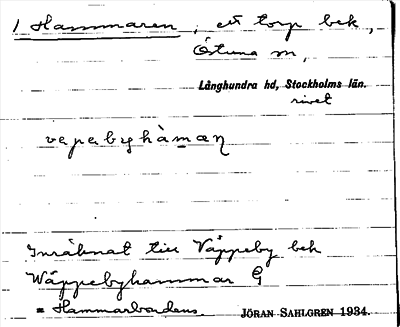 1 Hammaren, ett torp bek,
Östuna sn,
Långhundra hd, Stockholms län.
rivet
Inräknat till Väppeby bek
Wäppebyhammar G
= Hammarbodens.
JÖRAN SAHLGREN 1934.